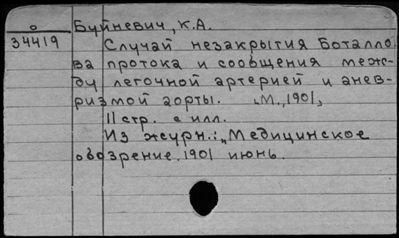 о Буйневич, К.А.
34419 Случай незакрытия Боталло
ва протока и сообщения меж-
ду легочной артерией и анев-
ризмой аорты. М., 1901,
11 стр. с илл.
Из журн.: „Медицинское
обозрение, 1901 июнь.